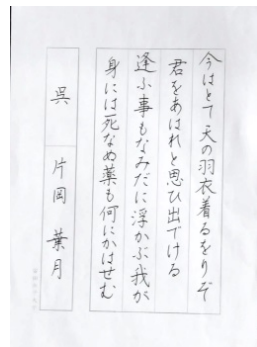 今はとて天の羽衣着るをりぞ
君をあはれと思ひ出でける
逢ふ事もなみだに浮かぶ我が
身には死なぬ薬も何にかはせむ
呉 片岡葉月